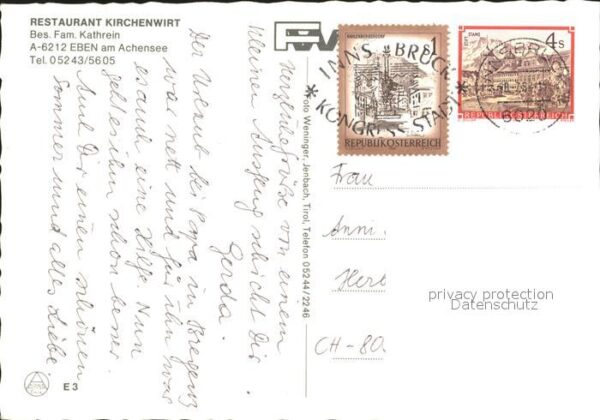 RESTAURANT KIRCHENWIRT
Bes. Fam. Kathrein
A-6212 EBEN am Achensee
Tel. 05243/5605
Herzl. Grüße von einem
kleinen Ausflug schickt Dir
Gerda.
Der Urlaub bei Papa in Bregenz
war nett und für ihn war
es auch eine Hilfe. Nun
geht es ihm schon besser.
Auch Dir einen schönen
Sommer und alles Liebe.
E 3
Foto Weninger, Jenbach, Tirol, Telefon 05244/2246
INNSBRUCK
KONGRESSSTADT
S 1
REPUBLIK ÖSTERREICH
STANS
4 S
REPUBLIK ÖSTERREICH
Frau
Anni
Herb
CH-80
privacy protection
Datenschutz